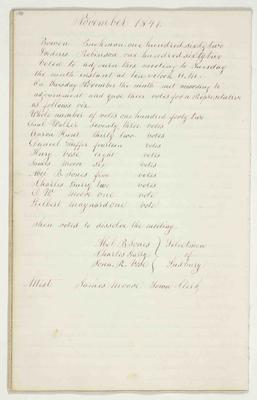 November 1841.
Bowen Buckman one hundred sixty two
Frederic Robinson one hundred sixty two
Voted to adjourn this meeting to Tuesday
the ninth instant at ten o'clock A.M.
On Tuesday November the ninth met according to
adjournment and gave their votes for a Representative
as follows viz.
Whole number of votes one hundred forty two
Walker seventy three votes
Aaron Hunt thirty two votes
Daniel Puffer fourteen votes
Henry Vose eight votes
James Moore six votes
Abel B. Jones five votes
Charles Gerry two votes
E. W. Moore one vote
Gilbert Maynard one vote
Then voted to dissolve the meeting.
Abel B. Jones Selectmen
Charles Gerry of
Jona. R. Vose Sudbury
Attest James Moore Town Clerk